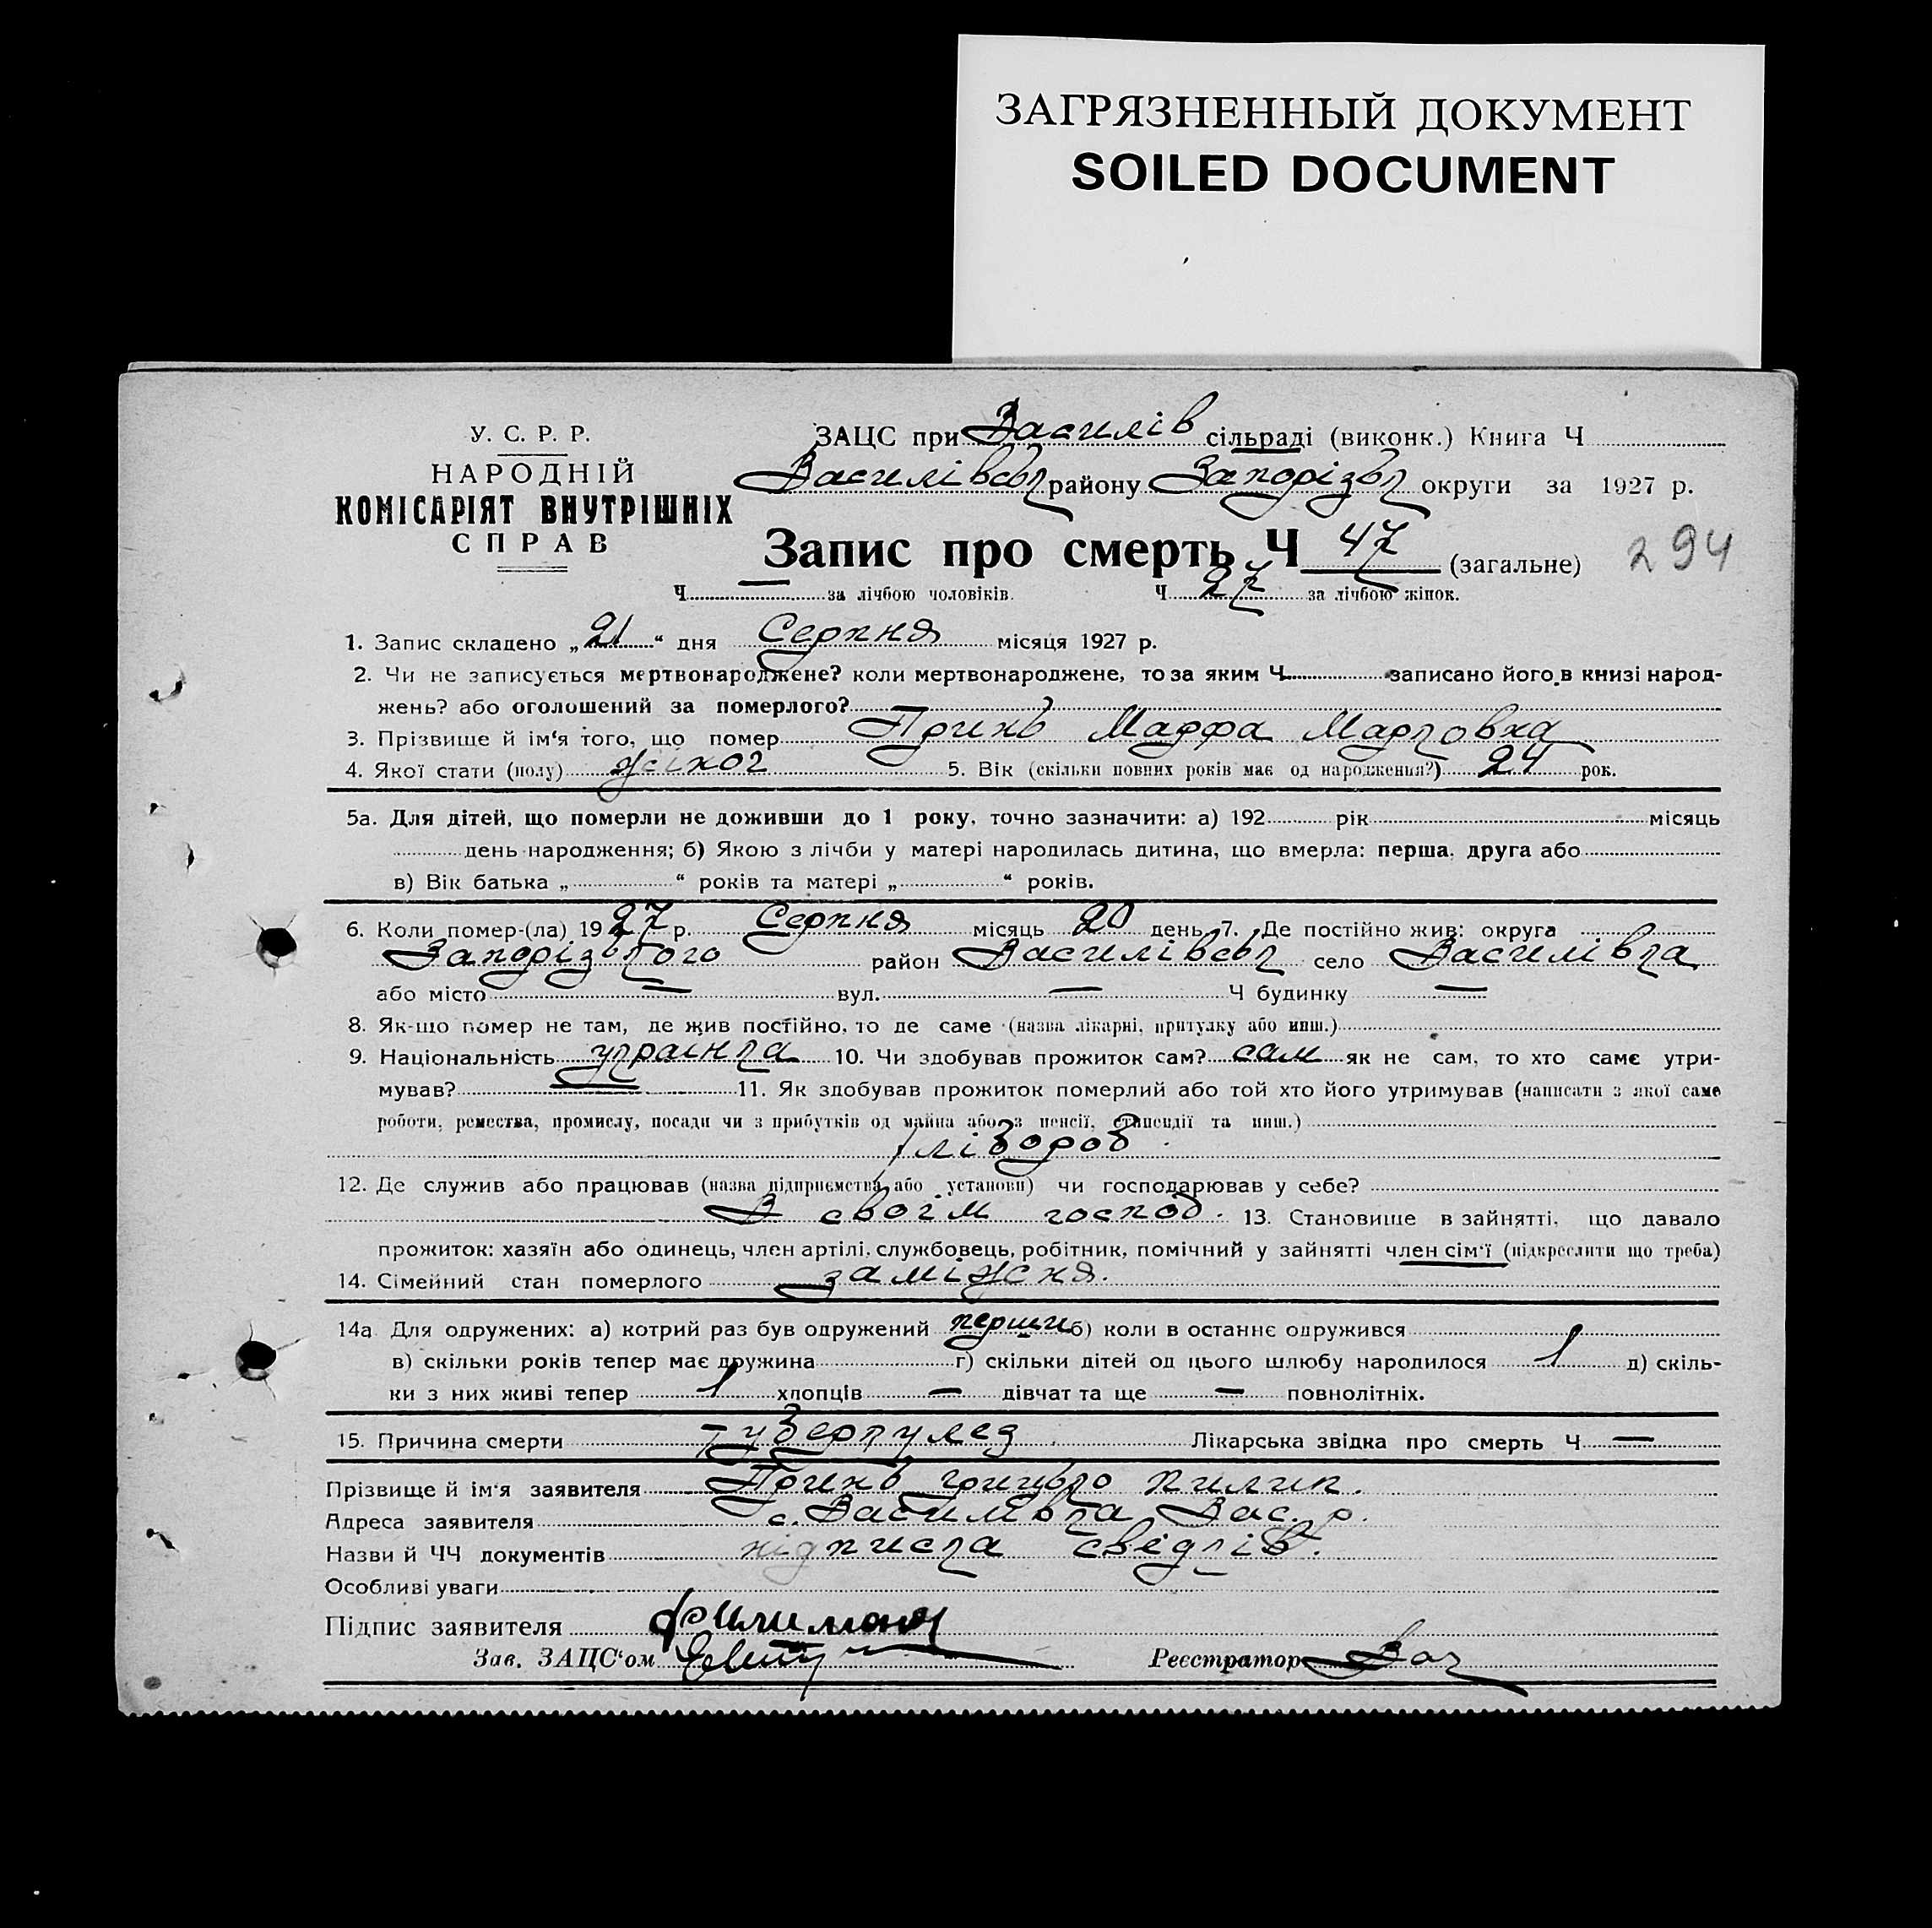 ЗАГРЯЗНЕННЫЙ ДОКУМЕНТ
SOILED DOCUMENT
У. С. Р. Р.
НАРОДНІЙ
КОМІСАРІЯТ ВНУТРІШНІХ
СПРАВ
ЗАЦС при Василів сільраді (виконк.) Книга Ч
Василівськ району Запорізьк округи за 1927 р.
Запис про смерть Ч 47 (загальне) 294
Ч — за лічбою чоловіків. Ч 27 за лічбою жінок.
1. Запис складено „21“ дня Серпня місяця 1927 р.
2. Чи не записується мертвонароджене? коли мертвонароджене, то за яким Ч записано його в книзі народ-
жень? або оголошений за померлого?
3. Прізвище й ім‘я того, що помер Принь Марфа Марковна
4. Якої стати (полу) жіноч 5. Вік (скільки повних років має од народження?) 24 рок.
5а. Для дітей, що померли не доживши до 1 року, точно зазначити: а) 192 рік місяць
день народження; б) Якою з лічби у матері народилась дитина, що вмерла: перша, друга або
в) Вік батька „ “ років та матері „ “ років.
6. Коли помер-(ла) 1927 р. Серпня місяць 20 день 7. Де постійно жив: округа
Запорізького район Василівськ село Василівка
або місто — вул. — Ч будинку —
8. Як-що помер не там, де жив постійно, то де саме (назва лікарні, притулку або инш.)
9. Національність українка 10. Чи здобував прожиток сам? сам як не сам, то хто саме утри-
мував? — 11. Як здобував прожиток померлий або той хто його утримував (написати з якої саме
роботи, ремества, промислу, посади чи з прибутків од майна або з пенсії, стипендії та инш.)
хлібороб
12. Де служив або працював (назва підприємства або установи) чи господарював у себе?
В своїм господ. 13. Становище в зайнятті, що давало
прожиток: хазяїн або одинець, член артілі, службовець, робітник, помічний у зайнятті член сім‘ї (підкреслити що треба)
14. Сімейний стан померлого заміжня.
14а Для одружених: а) котрий раз був одружений перший б) коли в останнє одружився
в) скільки років тепер має дружина г) скільки дітей од цього шлюбу народилося 1 д) скіль-
ки з них живі тепер 1 хлопців — дівчат та ще — повнолітніх.
15. Причина смерти туберкулез Лікарська звідка про смерть Ч —
Прізвище й ім‘я заявителя Принь Грицько Пилип.
Адреса заявителя с. Василівка Вас. р.
Назви й ЧЧ документів підписка свідків.
Особливі уваги
Підпис заявителя
Зав. ЗАЦС‘ом Реєстратор